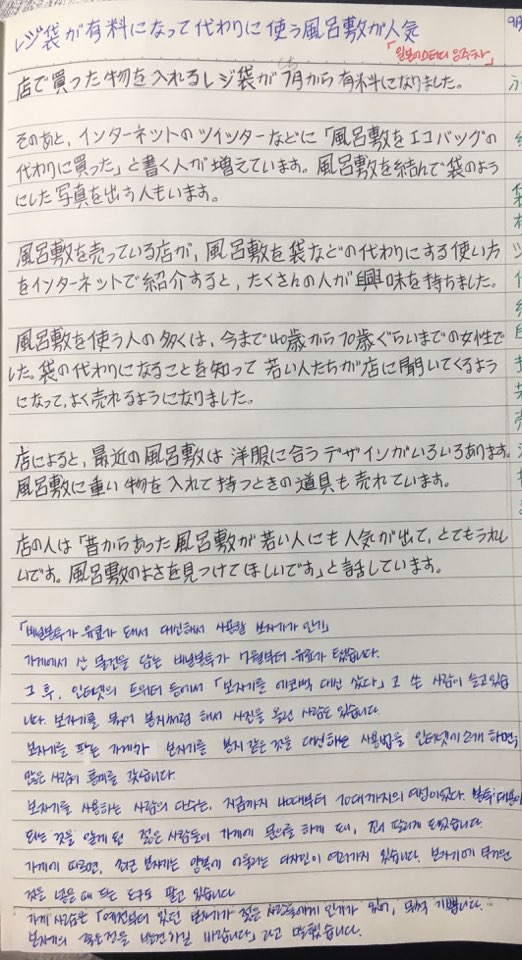 レジ袋が有料になって代わりに使う風呂敷が人気
店で買った物を入れるレジ袋が7月から有料になりました。
そのあと、インターネットのツイッターなどに「風呂敷をエコバッグの
代わりに買った」と書く人が増えています。風呂敷を結んで袋のよう
にした写真を出す人もいます。
風呂敷を売っている店が、風呂敷を袋などの代わりにする使い方
をインターネットで紹介すると、たくさんの人が興味を持ちました。
風呂敷を使う人の多くは、今まで40歳から70歳ぐらいまでの女性で
した。袋の代わりになることを知って若い人たちが店に聞いてくるよう
になって、よく売れるようになりました。
店によると、最近の風呂敷は洋服に合うデザインがいろいろあります。
風呂敷に重い物を入れて持つときの道具も売れています。
店の人は「昔からあった風呂敷が若い人にも人気が出て、とてもうれし
いです。風呂敷のよさを見つけてほしいです」と話しています。
「비닐봉투가 유료가 돼서 대신해서 사용할 보자기가 인기」
가게에서 산 물건을 담는 비닐봉투가 7월부터 유료가 됐습니다.
그 후, 인터넷의 트위터 등에서 「보자기를 에코백 대신 샀다」고 쓴 사람이 늘고있습
니다. 보자기를 묶어 봉지처럼 해서 사진을 올린 사람도 있습니다.
보자기를 파는 가게가 보자기를 봉지 같은 것을 대신하는 사용법을 인터넷에 소개 하면,
많은 사람이 흥미를 갖습니다.
보자기를 사용하는 사람의 다수는, 지금까지 40대부터 70대까지의 여성이었다. 봉투 대신이
되는 것을 알게 된 젊은 사람들이 가게에 문의를 하게 돼, 잘 팔리게 되었습니다.
가게에 따르면, 최근 보자기는 양복에 어울리는 디자인이 여러가지 있습니다. 보자기에 무거운
것을 넣을 때 드는 도구도 팔고 있습니다
가게 사람은 「예전부터 있던 보자기가 젊은 사람들에게 인기가 있어, 무척 기쁩니다.
보자기의 좋은점을 발견하길 바랍니다」 라고 말했습니다.